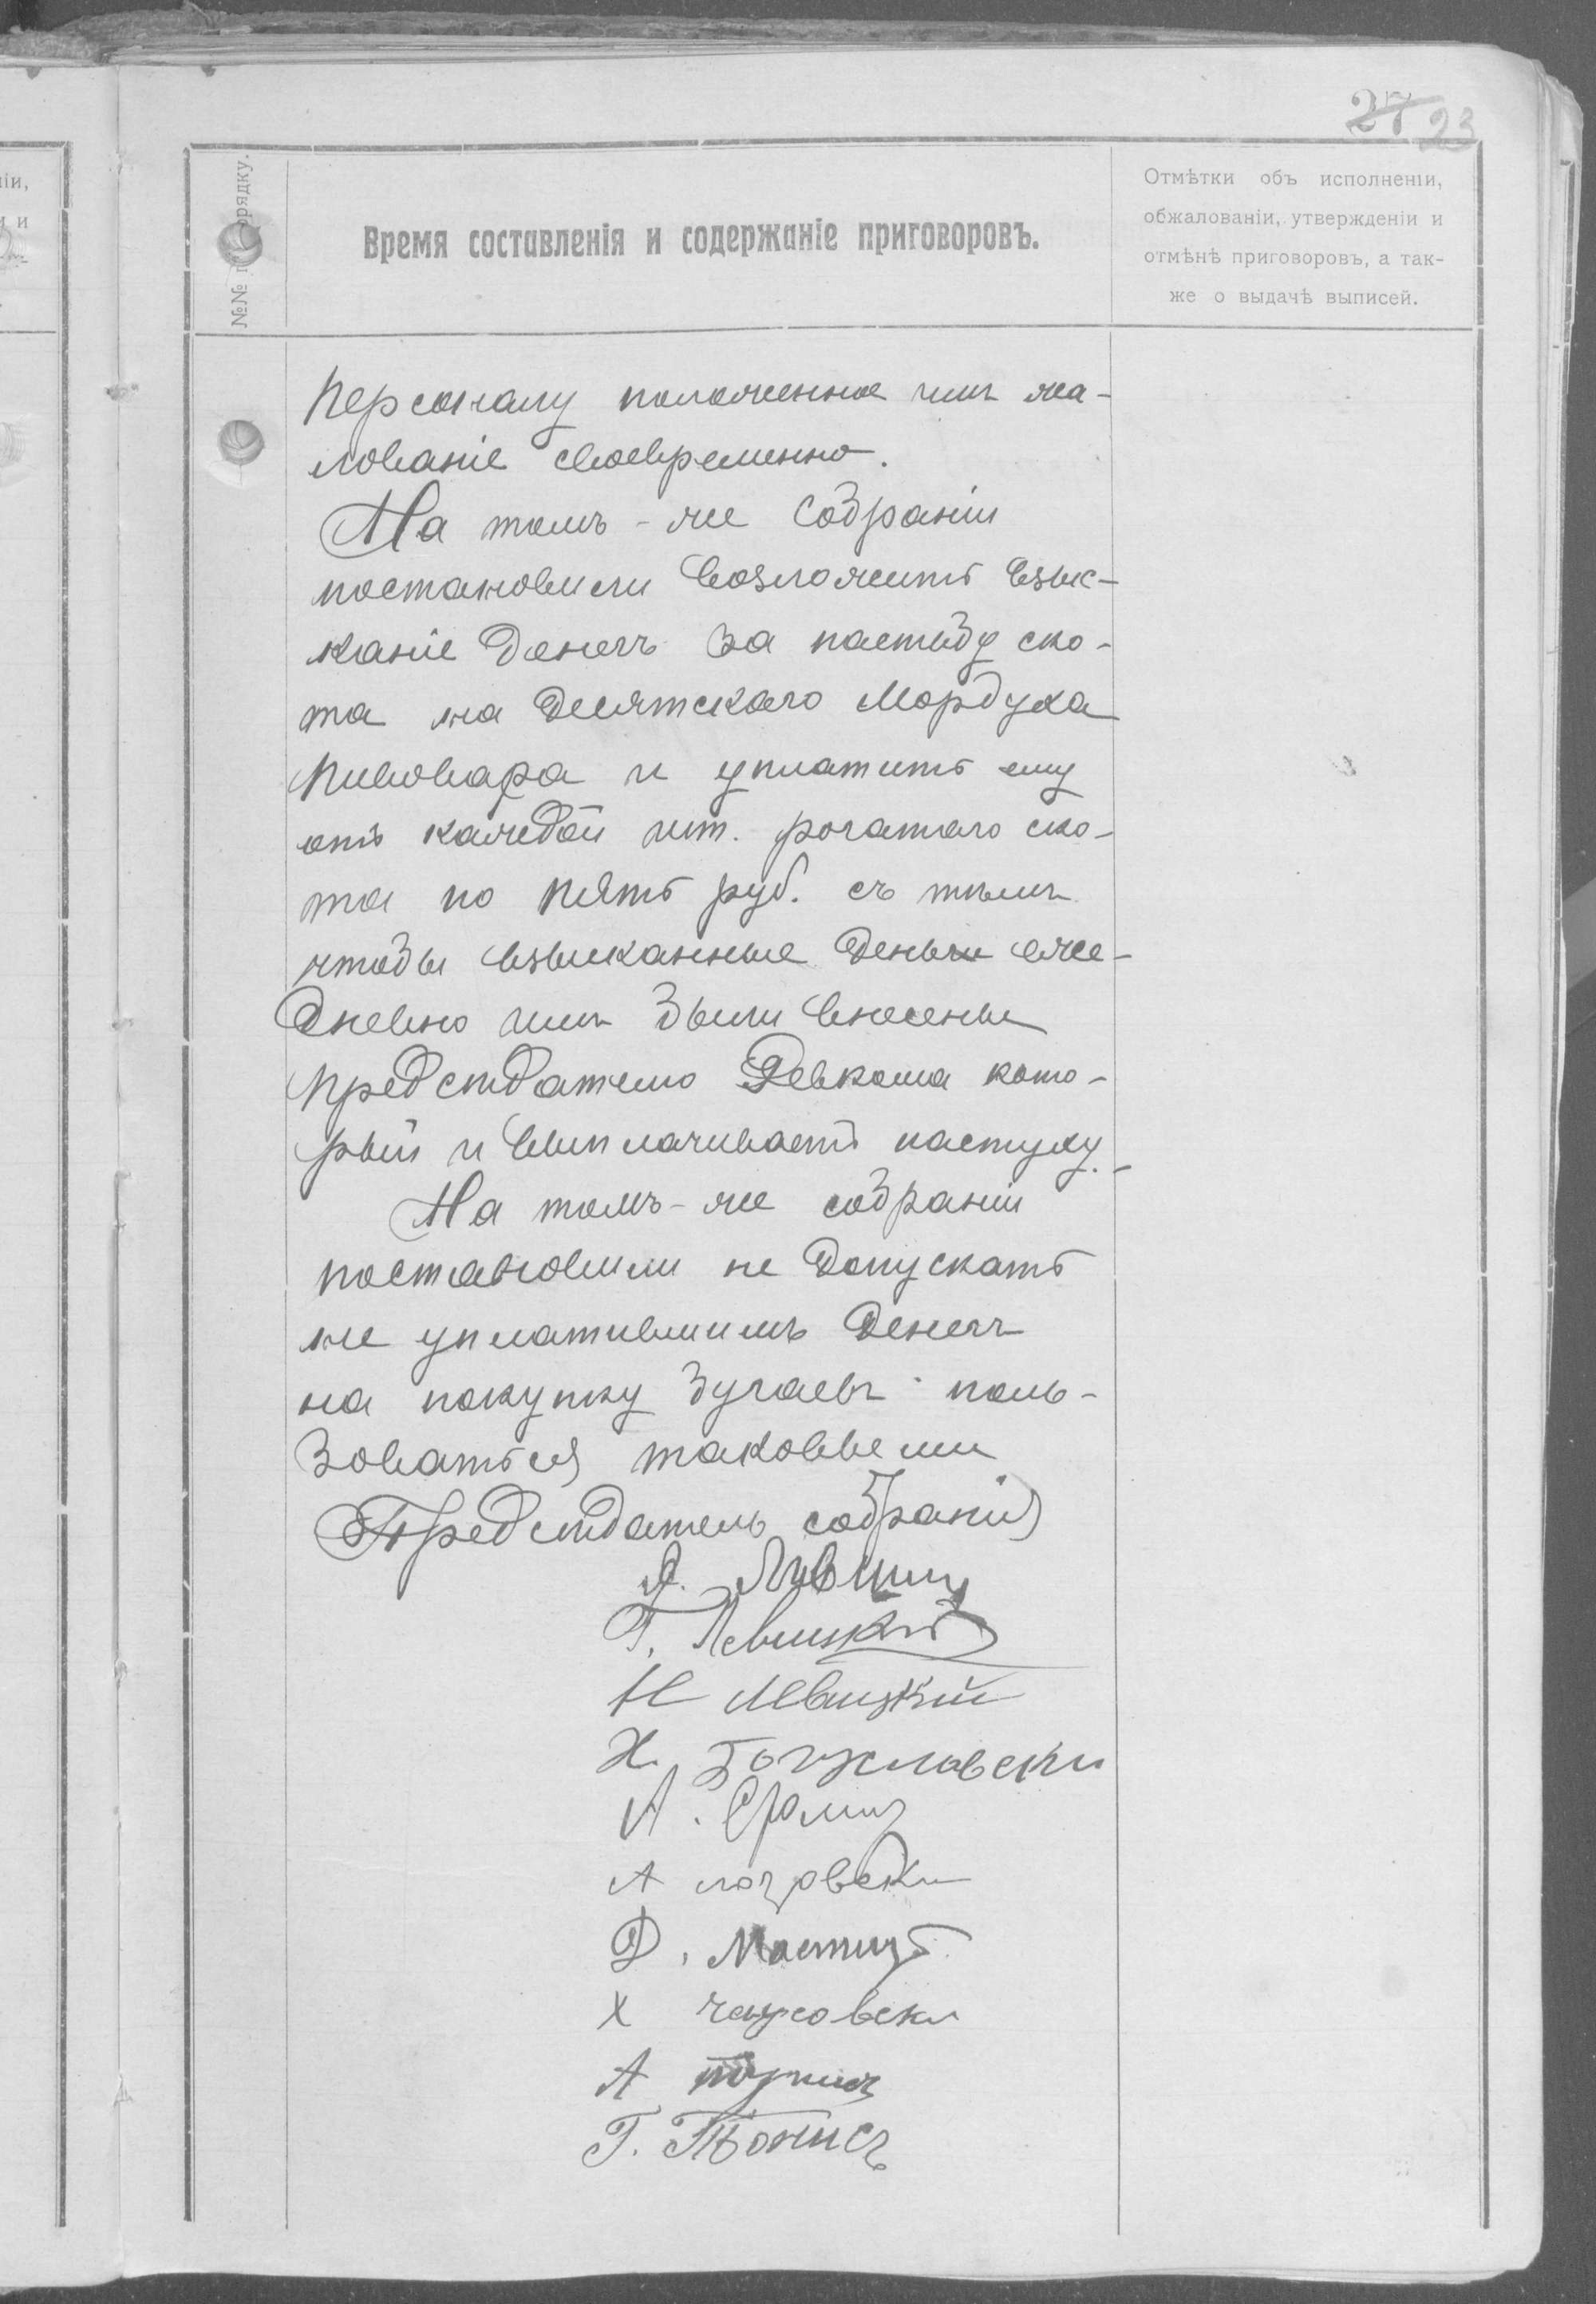 27 23
іи,
и и
№№ п орядку.
Время составленія и содержаніе приговоровъ.
Отмѣтки объ исполненіи,
обжалованіи, утвержденіи и
отмѣнѣ приговоровъ, а так-
же о выдачѣ выписей.
Персоналу положенное имъ жа-
лованіе своевременно.
На томъ-же Собраніи
постановили возложить взыс-
каніе денегъ за пастьбу ско-
та на Десятскаго Мордуха
Пивовара и уплатить ему
отъ каждой шт. рогатаго ско-
та по пять руб. съ тѣмъ
чтобы взысканные деньги еже-
дневно имъ были внесены
предсѣдателю Ревкома кото-
рый и выплачиваетъ пастуху.-
На томъ-же собраніи
постановили не допускать
не уплатившимъ денегъ
на покупку бугаевъ поль-
зоваться таковыми
Предсѣдатель собранія
Г. Левицкій
Н Левицкій
Х. Богуславски
А.
А
Д.
Х
А
Г.